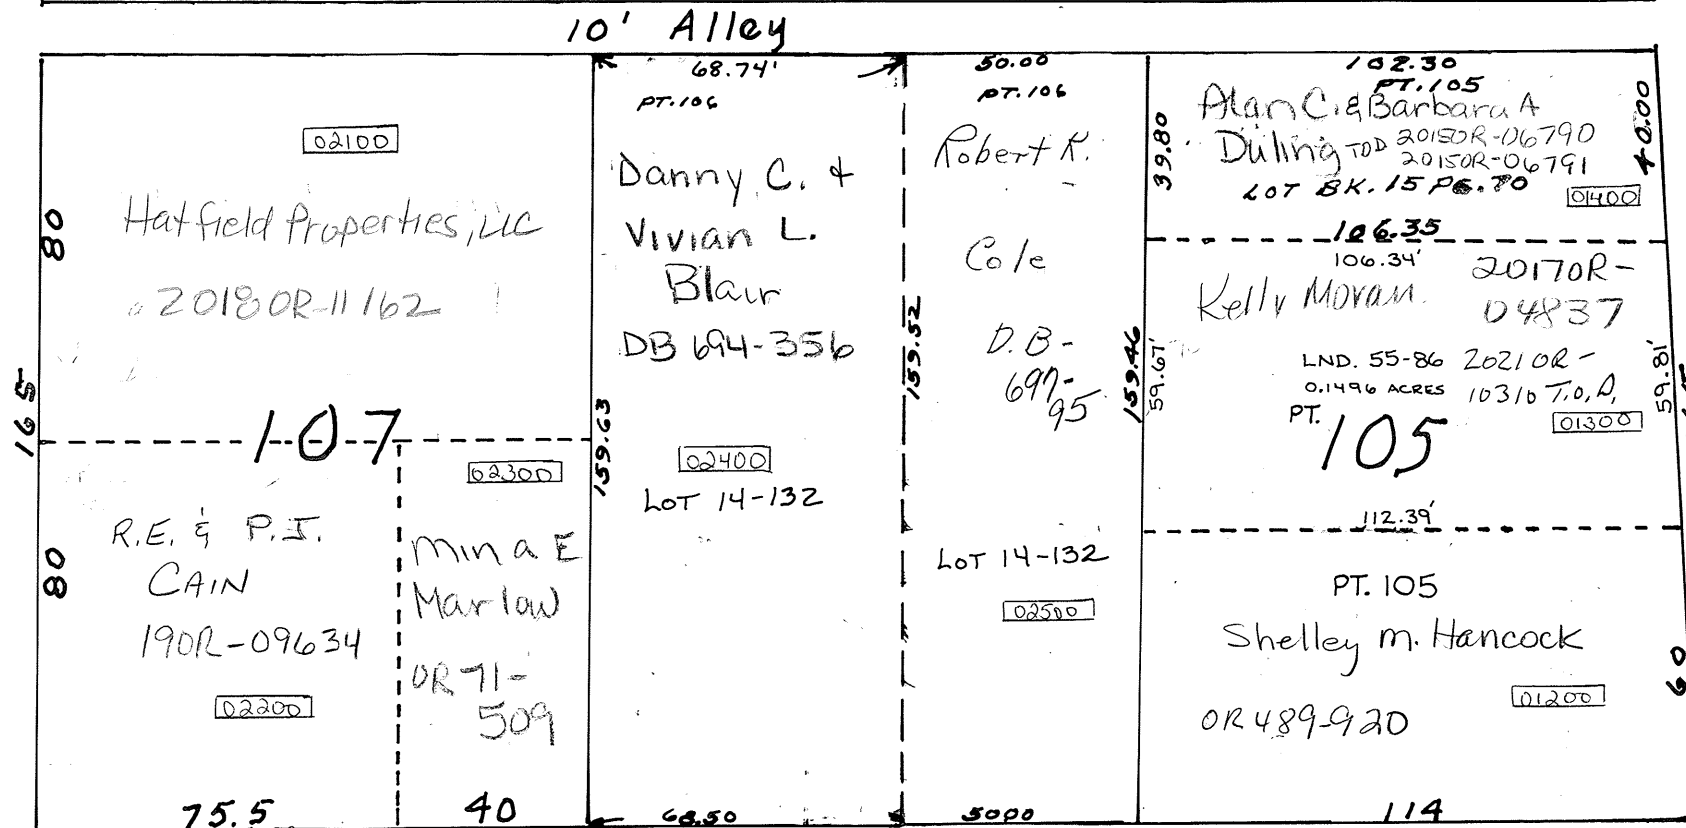 10' Alley
80
165
80
02100
Hatfield Properties, LLC
2018OR-11162
107
R.E. & P.J.
CAIN
19OR-09634
02200
75.5
02300
Mina E
Marlow
OR 71-
509
40
159.63
68.74'
PT.106
Danny C. &
Vivian L.
Blair
DB 694-356
02400
LOT 14-132
68.50
159.52
50.00
PT.106
Robert R.
Cole
D.B-
697-
95
LOT 14-132
02500
5000
159.46
102.30
PT.105
Alan C. & Barbara A
Duling TOD 2015OR-06790
2015OR-06791
LOT BK. 15 PG. 70
01400
39.80
40.00
106.35
106.34'
Kelly Moran
2017OR-
04837
LND. 55-86 2021OR-
0.1496 ACRES 10310 T.O.D.
01300
PT.
105
59.67'
59.81'
112.39'
PT. 105
Shelley M. Hancock
01200
OR 489-920
60
114